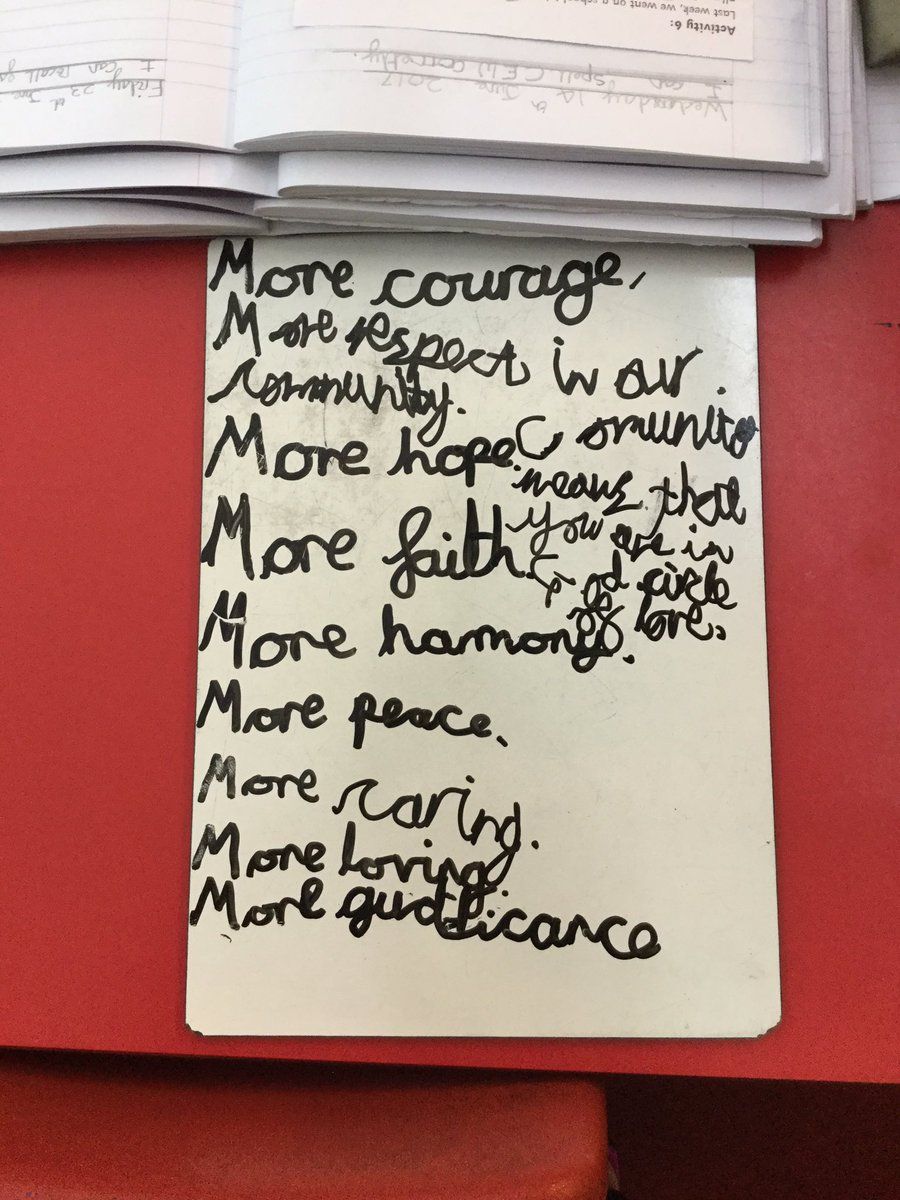 Activity 6:
Last week, we went on a school
Wednesday 14th June 2017
I can spell CEW correctly.
Friday 23rd June
I can recall
More courage,
More respect in our
community.
More hope.
More faith.
More harmony.
More peace.
More caring.
More loving
More
Comunity
means that
you are in
God circle
of love.